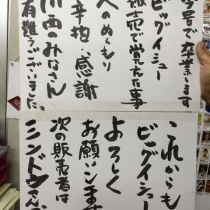 今号で卒業います
ビッグイシュー
販売で覚えた事
人のぬくもり
辛抱・感謝
川西のみなさん
有難うございました。
これからも
ビッグイシー
よろしく
お願いします
次の販売者は
ミシドウさん